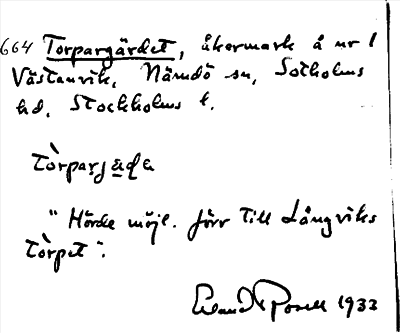 664 Torpargärdet, åkermark å nr 1
Västanvik, Nämdö sn, Sotholms
hd, Stockholms l.
tòrparjäda
"Hörde möjl. förr till Långviks
tòrpet".
Erland Rosell 1933